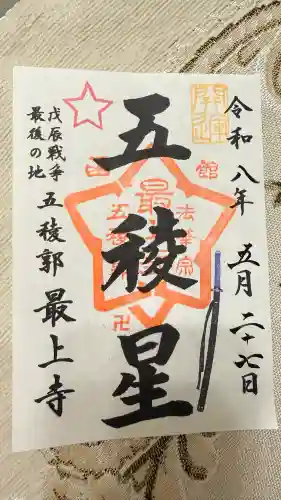 令和八年 五月二十七日
五稜星
戊辰戦争
最後の地
五稜郭 最上寺
開運
法華宗
館
卍